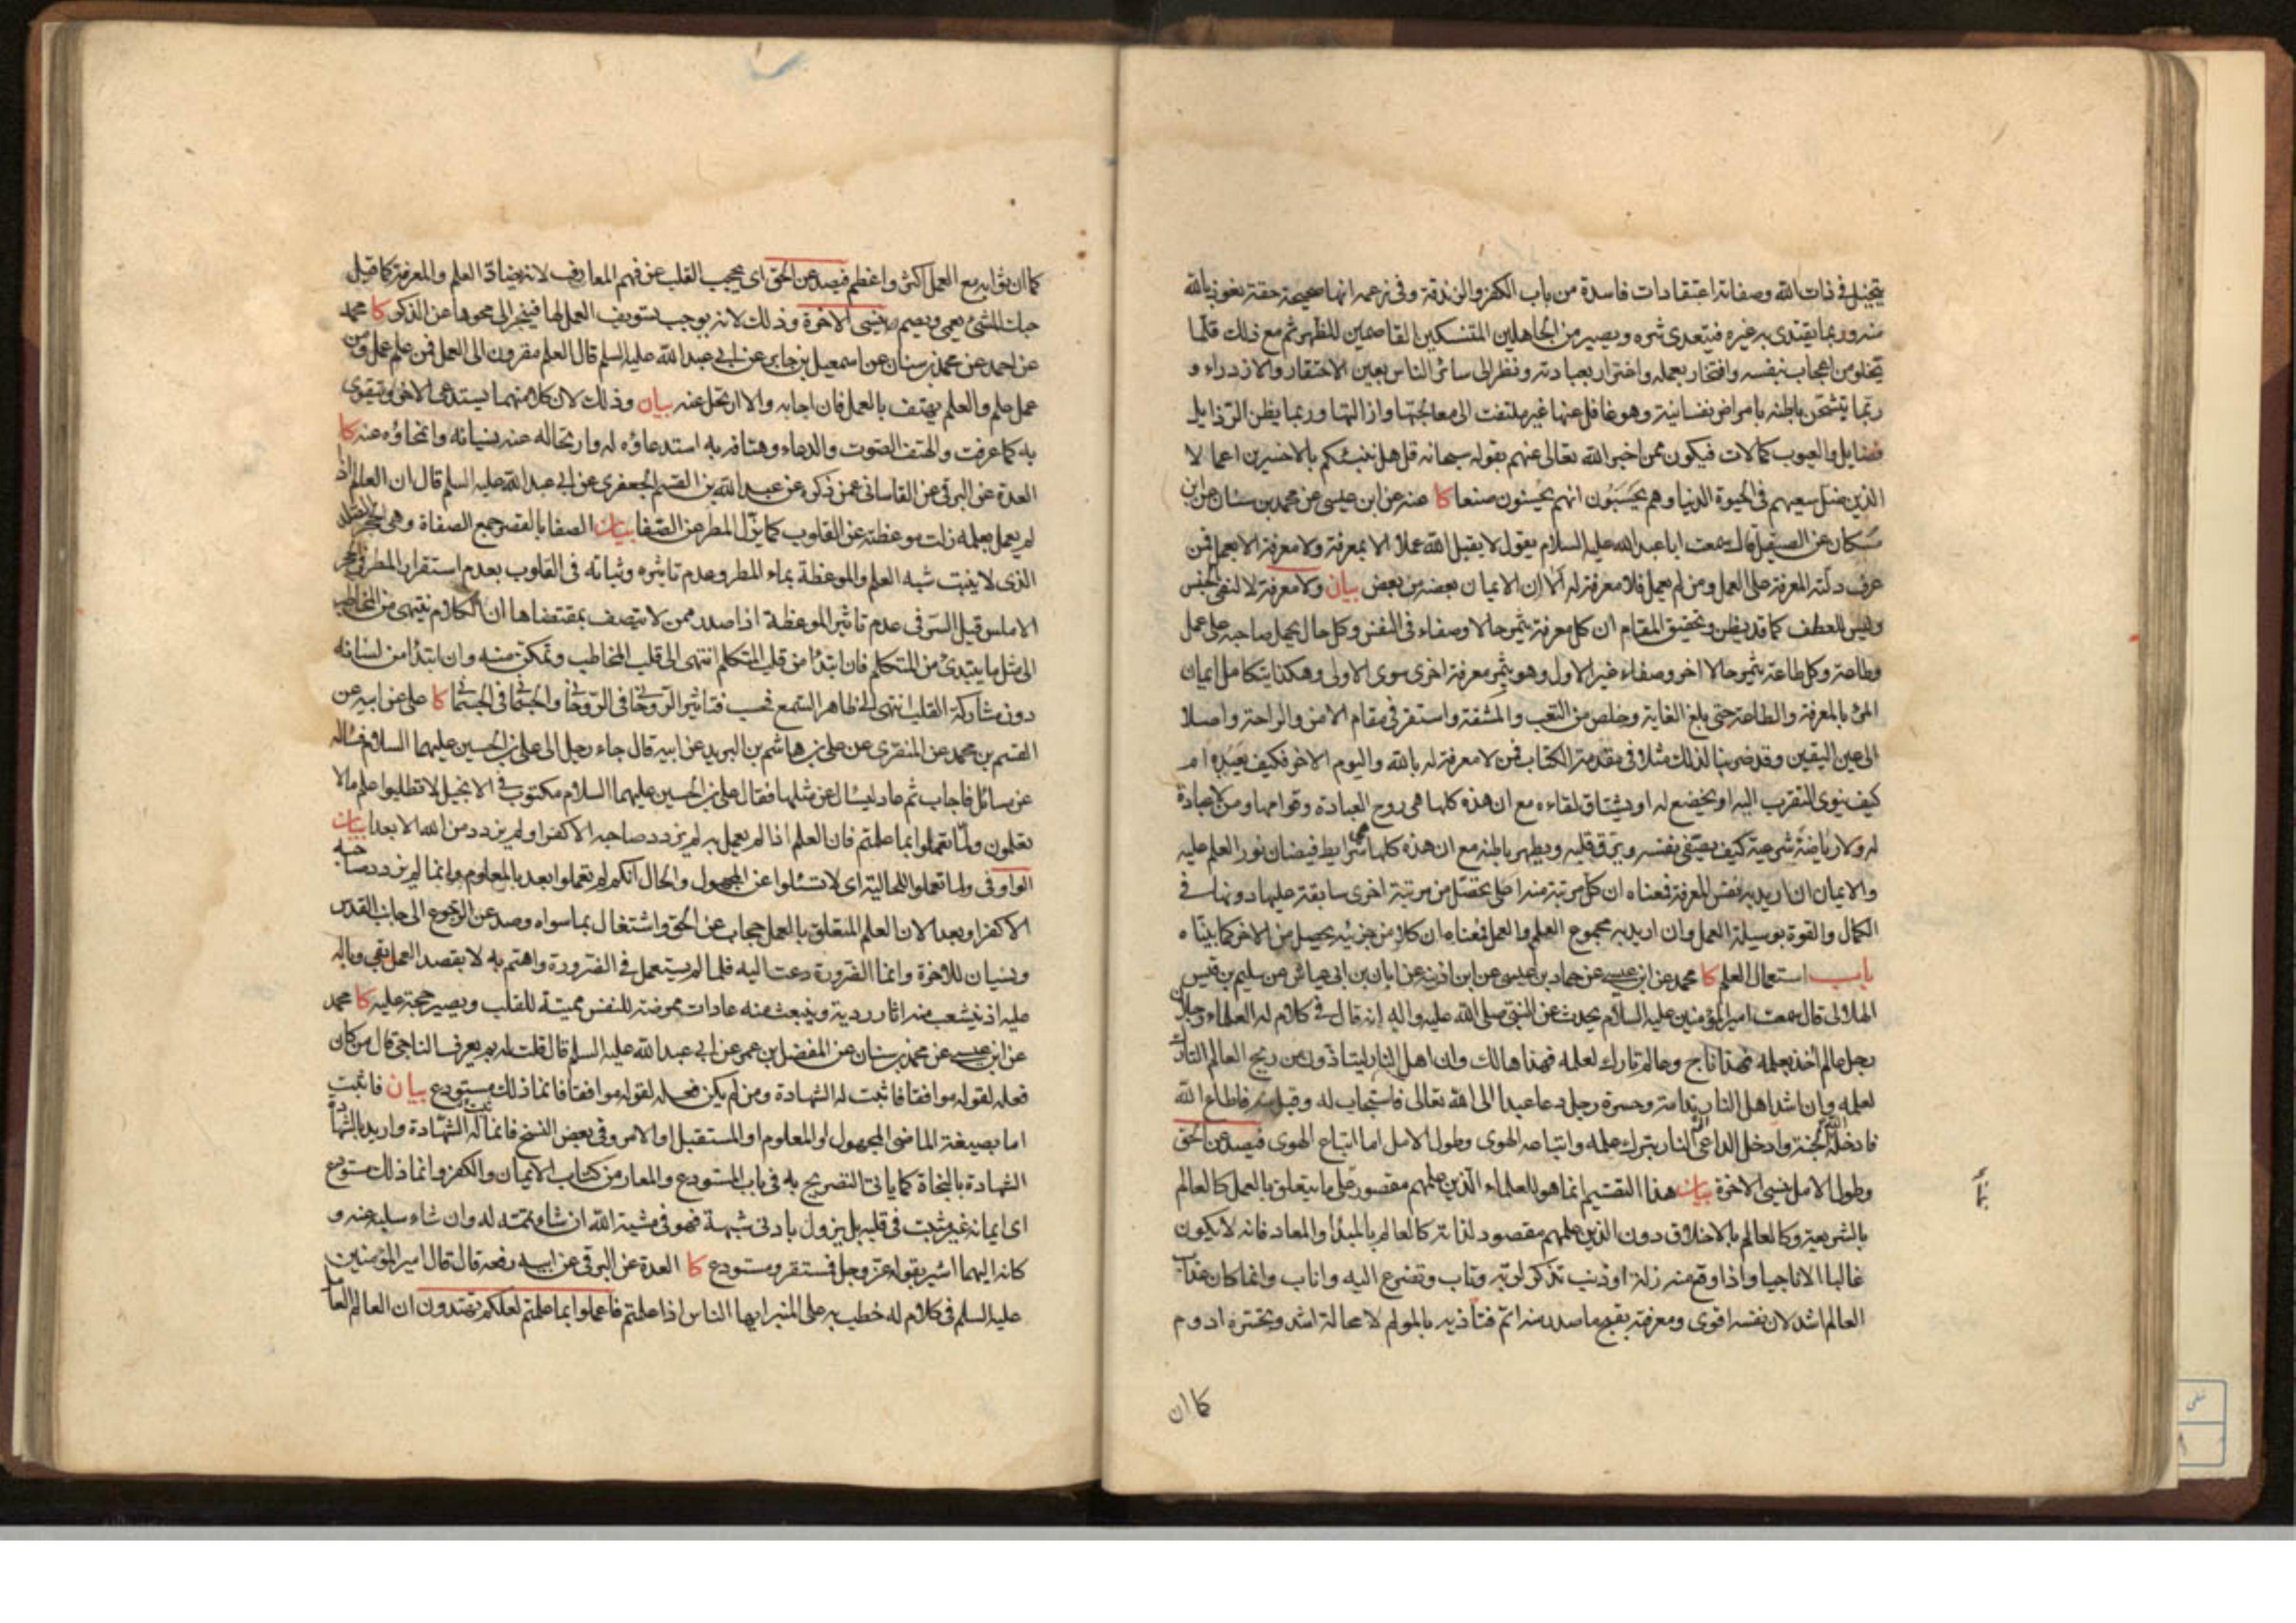 يتخيل في ذات الله وصفاته اعتقادات فاسدة من باب الكفر والزندقة وفي زعمه انها صحيحة حقة نعوذ بالله
منه وربما يقتدى به غيره فيتعدى شره ويصير من الجاهلين المتنسكين القاصمين للظهر ثم مع ذلك قلما
يخلو من اعجاب بنفسه وافتخار بعمله واغترار بعبادته ونظر الى سائر الناس بعين الاحتقار والازدراء و
ربما يتشحن باطنه بامراض نفسانية وهو غافل عنها غير ملتفت الى معالجتها وازالتها وربما يظن الرذايل
فضايل والعيوب كمالات فيكون ممن اخبر الله تعالى عنهم بقوله سبحانه قل هل ننبئكم بالاخسرين اعمالا
الذين ضل سعيهم في الحيوة الدنيا وهم يحسبون انهم يحسنون صنعا كا عنه عن ابن عيسى عن محمد بن سنان عن ابن
مسكان عن الصيقل قال سمعت ابا عبد الله عليه السلام يقول لا يقبل الله عملا الا بمعرفة ولا معرفة الا بعمل فمن
عرف دلته المعرفة على العمل ومن لم يعمل فلا معرفة له الا ان الايمان بعضه من بعض بيان ولا معرفة لا لنفى الجنس
وليس للعطف كما قد يظن وتحقيق المقام ان كل معرفة يثمر حالا وصفاء في النفس وكل حال يحمل صاحبه على عمل
وطاعة وكل طاعة يثمر حالا اخر وصفاء غير الاول وهو يثمر معرفة اخرى سوى الاولى وهكذا يتكامل ايمان
المرء بالمعرفة والطاعة حتى بلغ الغاية وخلص من التعب والمشقة واستقر في مقام الامن والراحة واصلا
الى عين اليقين وقد ضربنا لذلك مثلا في مقدمة الكتاب فمن لا معرفة له بالله واليوم الاخر فكيف يعبده ام
كيف ينوى التقرب اليه او يخضع له او يشتاق لقاءه مع ان هذه كلها هي روح العبادة وقوامها ومن لا عبادة
له ولا رياضة شرعية كيف يصفى نفسه ويرق قلبه ويطهر باطنه مع ان هذه كلها هي شرايط فيضان نور العلم عليه
والايمان ان اريد به نفس المعرفة فمعناه ان كل مرتبة منه اعلى يحصل من مرتبة اخرى سابقة عليها دونها في
الكمال والقوة بوسيلة العمل وان اريد به مجموع العلم والعمل فمعناه ان كلا من جزئيه يحصل من الاخر كما بيناه
باب استعمال العلم كا محمد عن ابن عيسى عن حماد بن عيسى عن ابن اذينة عن ابان بن ابي عياش عن سليم بن قيس
الهلالي قال سمعت امير المؤمنين عليه السلام يحدث عن النبي صلى الله عليه واله انه قال في كلام له العلماء رجلان
رجل عالم اخذ بعلمه فهذا ناج وعالم تارك لعلمه فهذا هالك وان اهل النار ليتاذون من ريح العالم التارك
لعلمه وان اشد اهل النار ندامة وحسرة رجل دعا عبدا الى الله تعالى فاستجاب له وقبل منه فاطاع الله
فادخله الله الجنة وادخل الداعي النار بترك علمه واتباعه الهوى وطول الامل اما اتباع الهوى فيصد عن الحق
وطول الامل ينسى الاخرة بيان هذا التقسيم انما هو للعلماء الذين علمهم مقصور على ما يتعلق بالعمل كالعالم
بالشريعة وكالعالم بالاخلاق دون الذين علمهم مقصود لذاته كالعالم بالمبدأ والمعاد فانه لا يكون
غالبا الا ناجيا واذا وقع منه زلة او ذنب تذكر لربه وتاب وتضرع اليه واناب وانما كان عذاب
العالم اشد لان نفسه اقوى ومعرفته بقبح ما صدر منه اتم فتأذيه بالمولم لا محالة اشد وحسرته ادوم
كما ان
كما ان ثوابه مع العمل اكثر واعظم فيصد عن الحق اى يحجب القلب عن فهم المعارف لانه يضاد العلم والمعرفة كما قيل
حبك للشئ يعمى ويصم وينسى الاخرة وذلك لانه يوجب تسويف العمل لها فينجر الى محوها عن الذكر كا محمد
عن احمد عن محمد بن سنان عن اسمعيل بن جابر عن ابي عبد الله عليه السلم قال العلم مقرون الى العمل فمن علم عمل ومن
عمل علم والعلم يهتف بالعمل فان اجابه والا ارتحل عنه بيان وذلك لان كلا منهما يستدعى الاخر ويتقوى
به كما عرفت والهتف الصوت والدعاء وهتافه به استدعاؤه له وارتحاله عنه بنسيانه وانمحاؤه عنه كا
العدة عن البرقى عن القاسانى عمن ذكره عن عبد الله بن القسم الجعفرى عن ابي عبد الله عليه السلم قال ان العالم اذا
لم يعمل بعلمه زلت موعظته عن القلوب كما يزل المطر عن الصفا بيان الصفا بالقصر جمع الصفاة وهى الحجر الصلد
الذى لا ينبت شبه العلم والموعظة بماء المطر وعدم تاثيره وثباته في القلوب بعدم استقرار المطر في الحجر
الاملس قيل السر في عدم تاثير الموعظة اذا صدر ممن لا يتصف بمقتضاها ان الكلام ينتهى من المخاطب
الى مثل ما يبتدئ من المتكلم فان ابتدأ من قلب المتكلم انتهى الى قلب المخاطب وتمكن منه وان ابتدأ من لسانه
دون مشاركة القلب انتهى الى ظاهر السمع فحسب فتاثير الروحاني في الروحاني والجسماني في الجسماني كا على عن ابيه عن
القسم بن محمد عن المنقرى عن على بن هاشم بن البريد عن ابيه قال جاء رجل الى على بن الحسين عليهما السلام فساله
عن مسائل فاجاب ثم عاد ليسال عن مثلها فقال على بن الحسين عليهما السلام مكتوب في الانجيل لا تطلبوا علم ما لا
تعلمون ولما تعملوا بما علمتم فان العلم اذا لم يعمل به لم يزدد صاحبه الا كفرا ولم يزدد من الله الا بعدا بيان
الواو في ولما تعملوا للحالية اى لا تسئلوا عن المجهول والحال انكم لم تعملوا بعد بالمعلوم وانما لم يزدد صاحبه
الا كفرا وبعدا لان العلم المتعلق بالعمل حجاب عن الحق واشتغال بما سواه وصد عن الرجوع الى جانب القدس
ونسيان للاخرة وانما الضرورة دعت اليه فلما لم يستعمل في الضرورة واهتم به لا بقصد العمل بقى وباله
عليه اذ ينشعب منه اثار ردية وينبعث منه عادات ممرضة للنفس مميتة للقلب ويصير حجة عليه كا محمد
عن ابن عيسى عن محمد بن سنان عن المفضل بن عمر عن ابي عبد الله عليه السلم قال قلت له بم يعرف الناجى قال من كان
فعله لقوله موافقا فاثبت له الشهادة ومن لم يكن فعله لقوله موافقا فانما ذلك مستودع بيان فاثبت
اما بصيغة الماضى المجهول او المعلوم او المستقبل او الامر وفي بعض النسخ فانما له الشهادة واريد بالشهادة
الشهادة بالنجاة كما ياتى التصريح به في باب المستودع والمعار من كتاب الايمان والكفر وانما ذلك مستودع
اى ايمانه غير ثبت في قلبه بل يزول بادنى شبهة فهو في مشية الله ان شاء تممه له وان شاء سلبه عنه و
كانه اليهما اشير بقوله عز وجل فمستقر ومستودع كا العدة عن البرقى عن ابيه رفعه قال قال امير المؤمنين
عليه السلم في كلام له خطب به على المنبر ايها الناس اذا علمتم فاعملوا بما علمتم لعلكم تهتدون ان العالم العامل